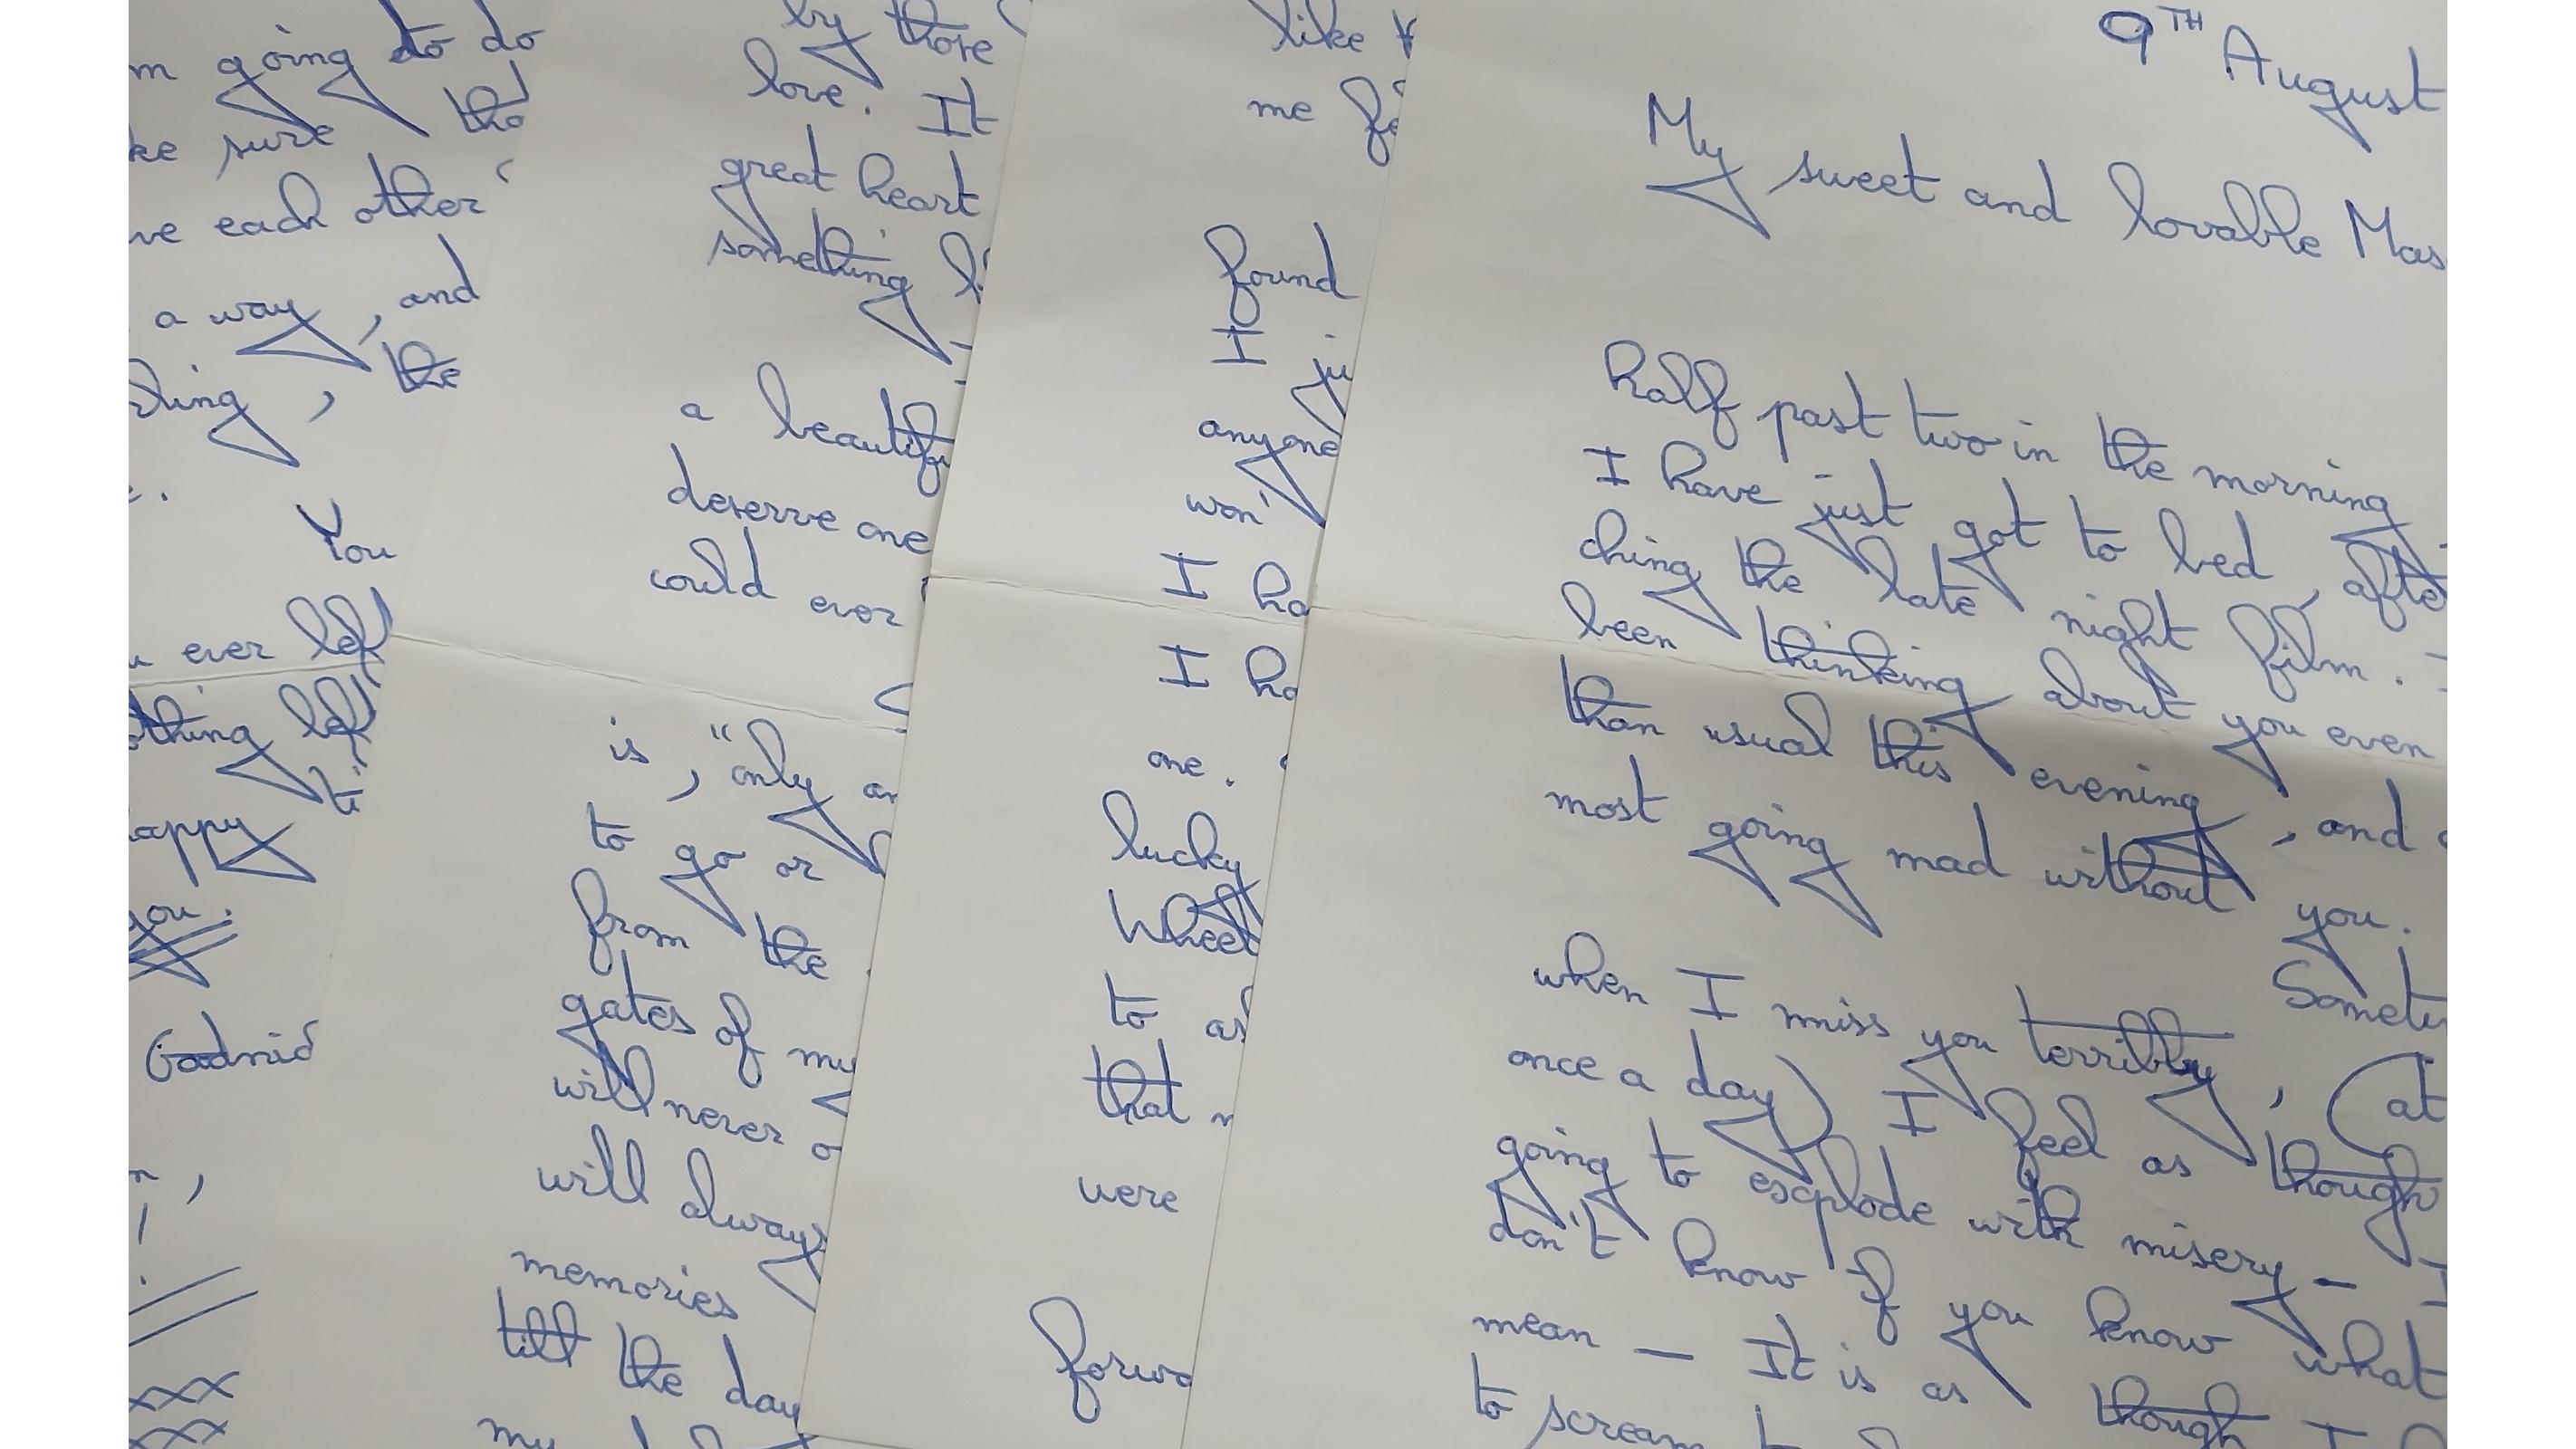 m going to do
ke sure tha
ve each other
a way, and
thing, the
e.
You
u ever left
thing left
ti
appy
you.
Goodnig
n,
!
xxx
xxx
by those
love. It
great heart
something l
a beautifu
deserve one
could ever
is, "only an
to go or
from the
gates of my
will never o
will always
memories
till the day
my
like t
me fe
found
I ju
anyone
won'
I ha
I ha
one.
lucky
Wheet
to as
that m
were
forwa
9TH August
My sweet and lovable Mas
Half past two in the morning
I have just got to bed, afte
ching the late night film. I
been thinking about you even
than usual this evening, and a
most going mad without you.
Someti
when I miss you terribly, (at
once a day) I feel as though
going to explode with misery — I
don't know if you know what
mean — It is as though I
to scream